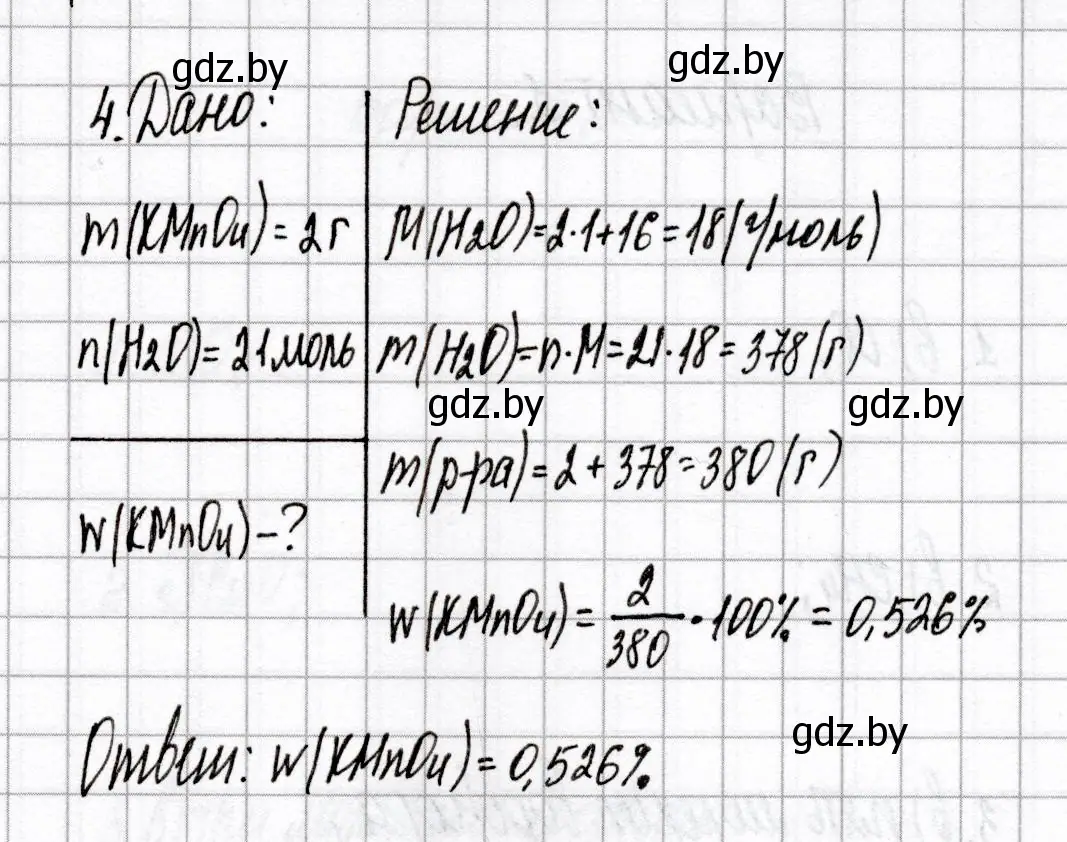 gdz.by
gdz.by
4. Дано:
m(KMnO4) = 2 г
n(H2O) = 21 моль
W(KMnO4) - ?
Решение:
M(H2O) = 2·1+16 = 18 (г/моль)
m(H2O) = n·M = 21·18 = 378 (г)
gdz.by
gdz.by
m(р-ра) = 2 + 378 = 380 (г)
W(KMnO4) = 2/380 · 100% = 0,526%
gdz.by
Ответ: W(KMnO4) = 0,526%.